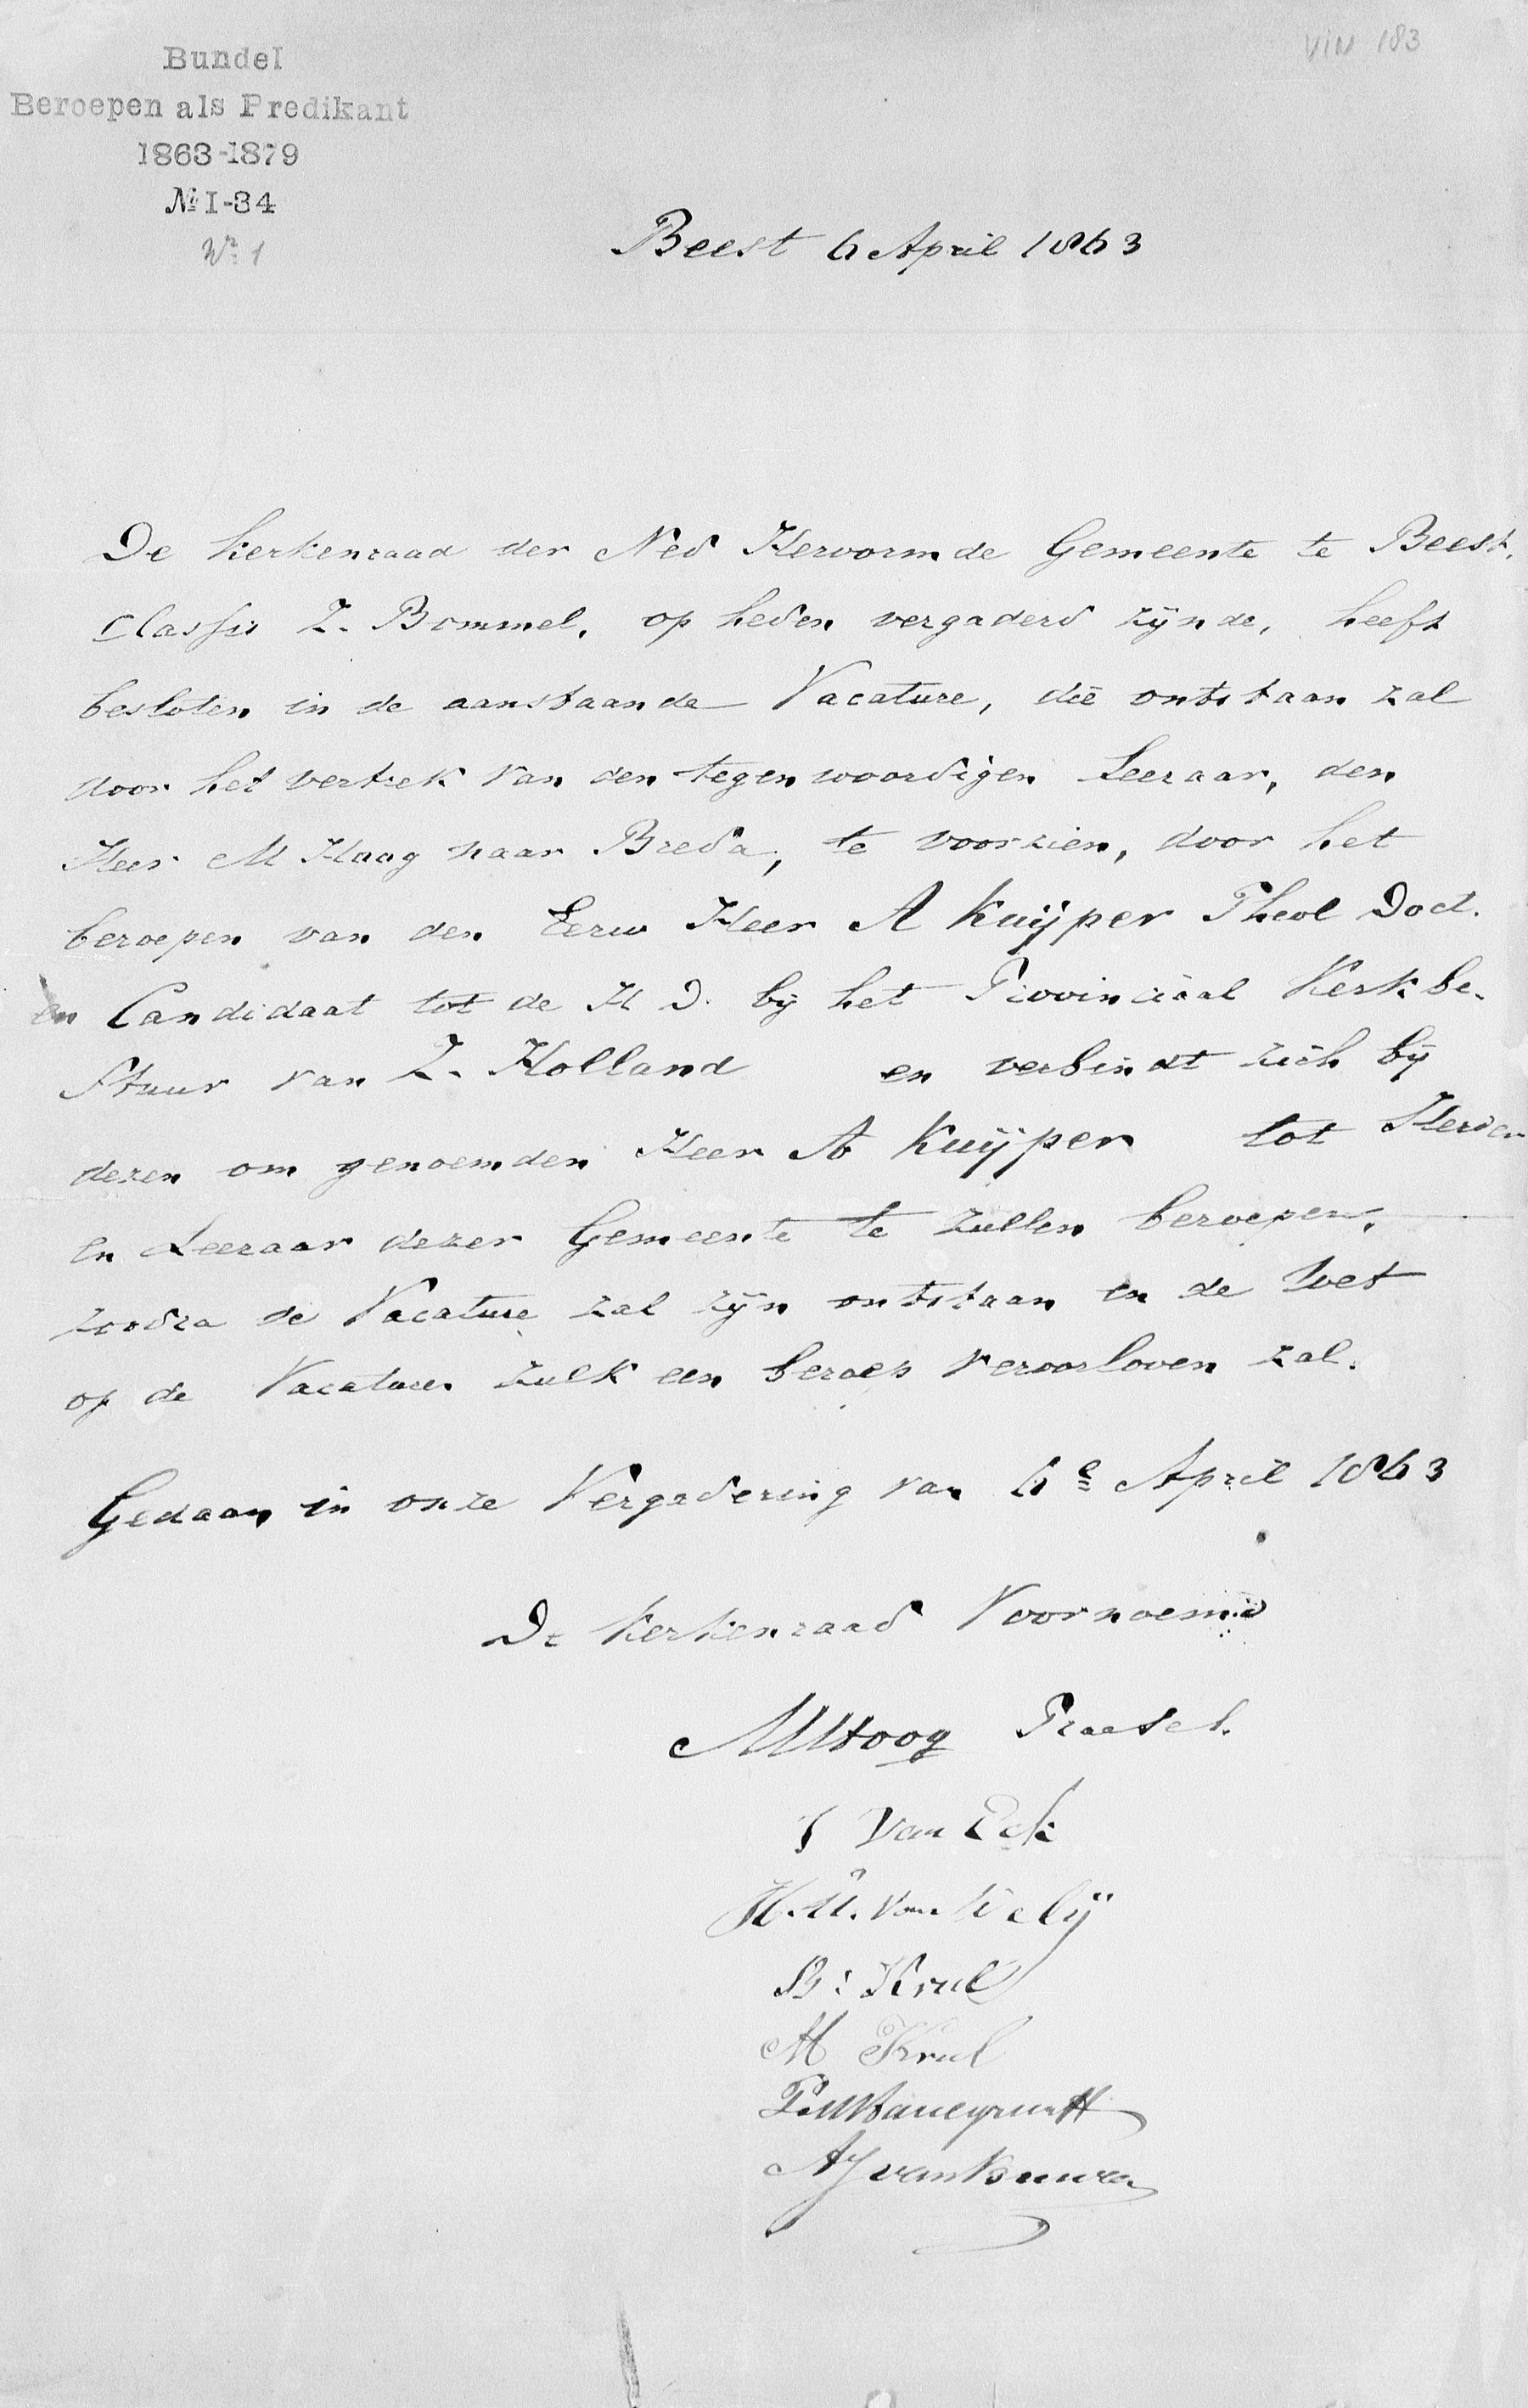 VIN 183
Bundel
Beroepen als Predikant
1863-1879
№ I-34
Nº 1
Beest 6 April 1863
De Kerkenraad der Ned Hervormde Gemeente te Beest.
Classis Z. Bommel, op heden vergaderd zijnde, heeft
besloten in de aanstaande Vacature, die ontstaan zal
door het vertrek van den tegenwoordigen Leeraar, den
Heer M Hoog naar Breda, te voorzien, door het
beroepen van den Eerw Heer A Kuijper Theol Doct.
en Candidaat tot de H D. bij het Provinciaal Kerkbe-
stuur van Z. Holland en verbindt zich bij
dezen om genoemden Heer A Kuijper tot Herder
en Leeraar dezer Gemeente te zullen beroepen,
zoodra de Vacature zal zijn ontstaan en de Wet
op de Vacatures zulk een beroep veroorloven zal.
Gedaan in onze Vergadering van 6e April 1863
De Kerkenraad Voornoemd
M Hoog Praeses.
van Eck
H. M. van
B: Krul
M Krul
AJ van